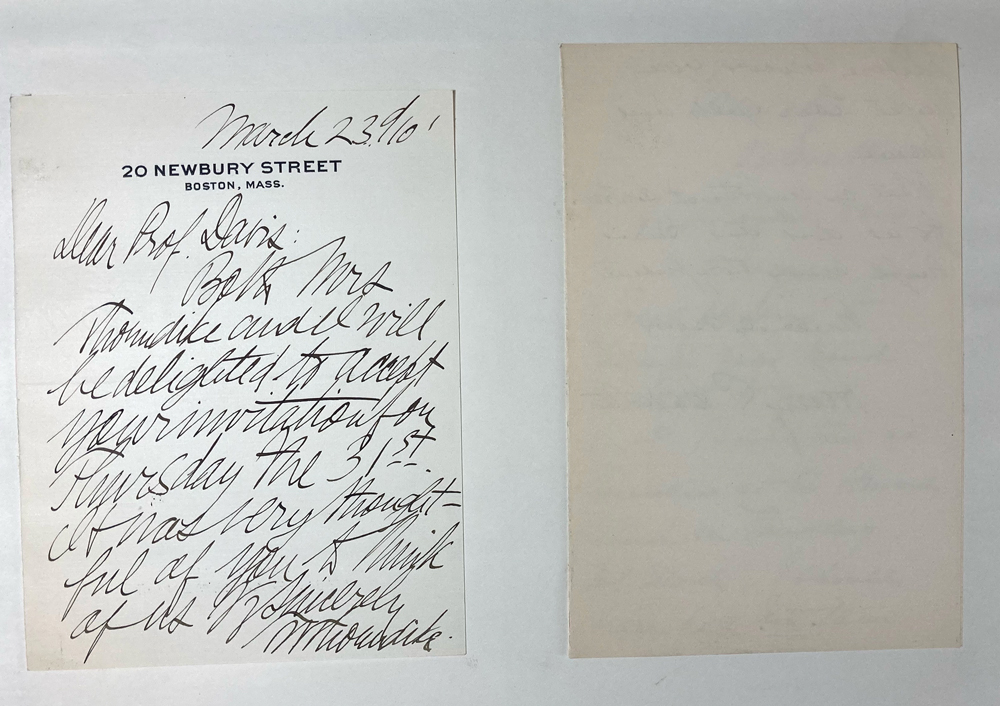 March 23rd/10'
20 NEWBURY STREET
BOSTON, MASS.
Dear Prof. Davis:
Both Mrs
Thorndike and I will
be delighted to accept
your invitation for
Thursday the 31st.
It was very thought-
ful of you to think
of us Yr sincerely
Thorndike.